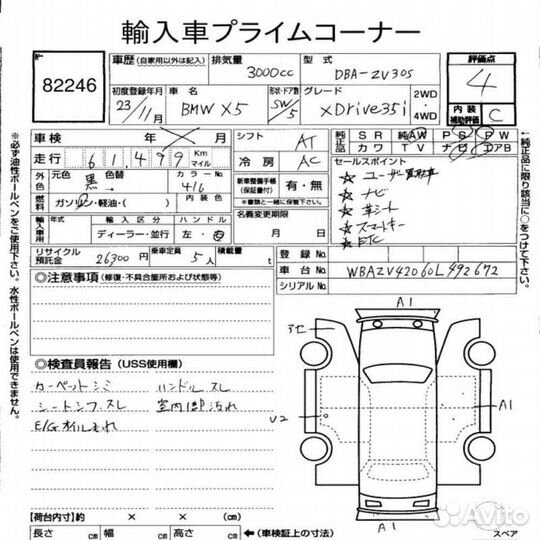 輸入車プライムコーナー
No. 82246
車歴 (自家用以外は記入)
排気量 3000cc
型式 DBA-ZV30S
評価点 4
初度登録年月 23/11月
車名 BMW X5
形状・ドア数 SW/5
グレード xDrive35i
2WD・4WD
内装補助評価 C
車検 年 月
シフト AT
純正品 SR 純AW PS PW
カワ TV ナビ エアB
走行 61,499 Km マイル
冷房 AC
セールスポイント
外色 元色 黒 色替 → カラーNo. 416
新車整備手帳(保証書付) 有・無
※書類と一緒に保管して下さい。
☆ ユーザー買取車
☆ ナビ
☆ 革シート
☆ スマートキー
☆ ETC
燃料 ガソリン・軽油・( ) 内装色
名義変更期限 月 日
輸入車用 年式 輸入区分 ディーラー・並行 ハンドル 左・右
リサイクル預託金 26300円 乗車定員 5人 積載量 t
登録No.
車台No. WBAZV42060L492672
シリアルNo.
◎注意事項 (修復・不具合箇所および状態等)
◎検査員報告 (USS使用欄)
カーペットシミ ハンドルスレ
シートシワ、スレ 室内1部汚れ
E/Gオイルもれ
A1
U2
A1
A1
【荷台内寸】約 × ×
長さ cm 幅 cm 高さ cm ←(車検証上の寸法)
スペア
※必ず油性ボールペンをご使用下さい。水性ボールペンは使用できません。
←純正品に限り該当に○をつけて下さい。
Avito